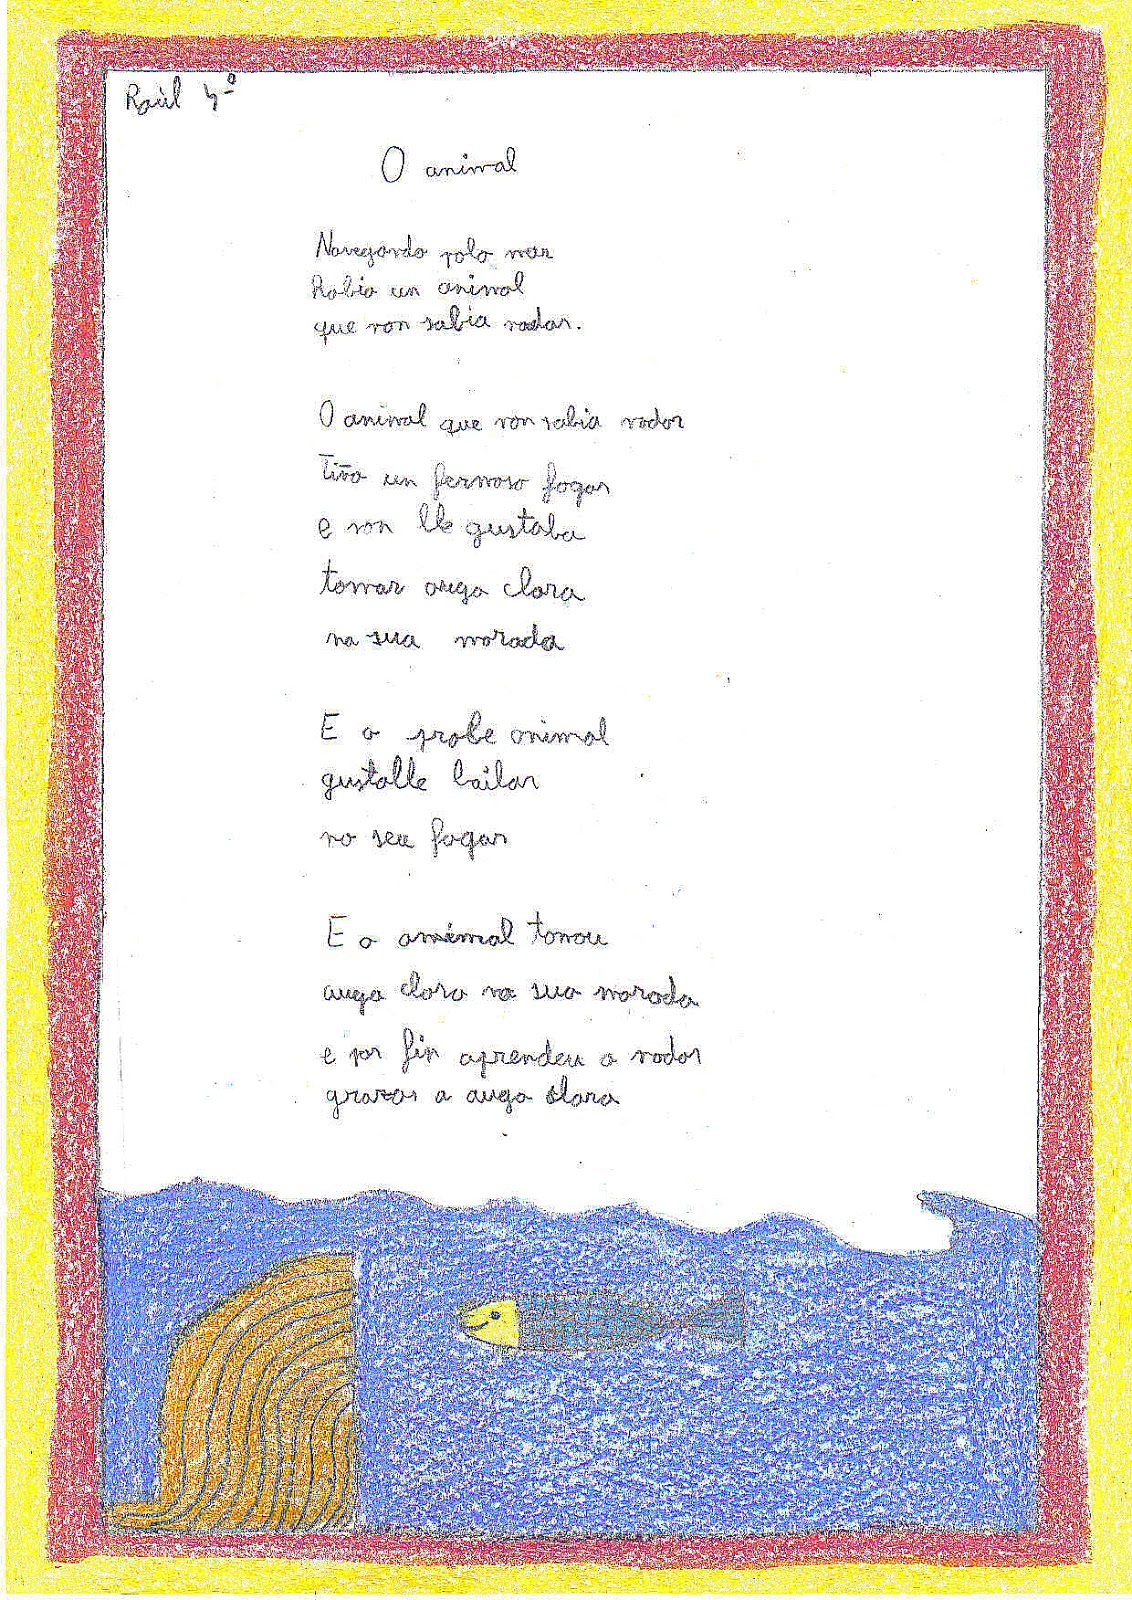 Raúl 4º
O animal
Navegando polo mar
Había un animal
que non sabia nadar.
O animal que non sabia nadar
Tiña un fermoso fogar
e non lle gustaba
tomar auga clara
na sua morada
E o probe animal
gustalle bailar
no seu fogar
E o animal tomou
auga clara na sua morada
e por fin aprendeu a nadar
grazas a auga clara